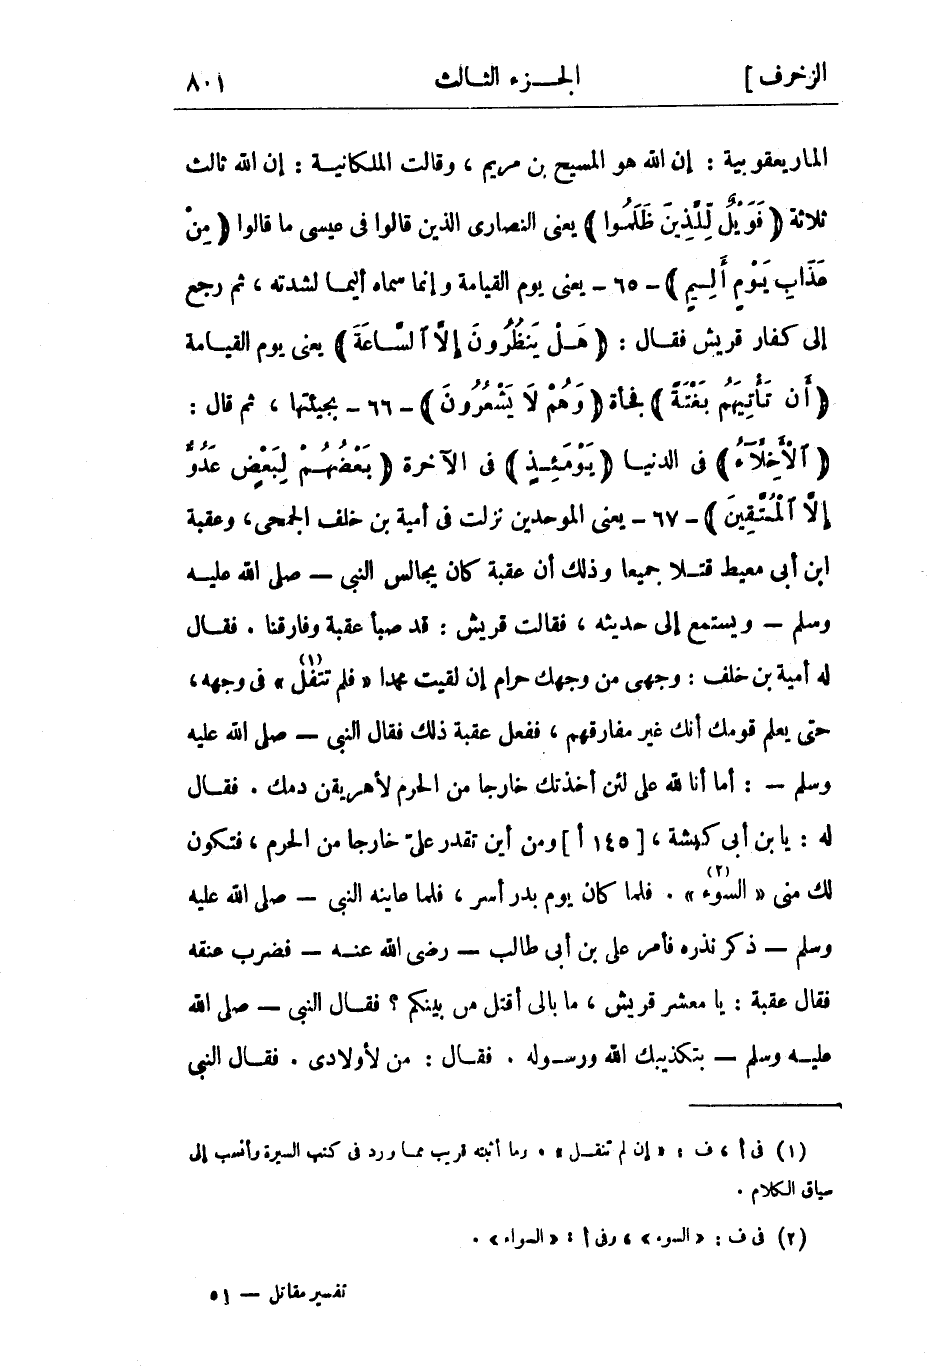 الزخرف ] الجـــزء الثالث ٨٠١
الماريعقوبية : إن الله هو المسيح بن مريم ، وقالت الملكانيـة : إن الله ثالث
ثلاثة ﴿ فَوَيْلٌ لِّلَّذِينَ ظَلَمُوا ﴾ يعنى النصارى الذين قالوا فى عيسى ما قالوا ﴿ مِنْ
عَذَابِ يَوْمٍ أَلِيمٍ ﴾ - ٦٥ - يعنى يوم القيامة وإنما سماه أليمـا لشدته ، ثم رجع
إلى كفار قريش فقـال : ﴿ هَـلْ يَنظُرُونَ إِلَّا ٱلسَّاعَةَ ﴾ يعنى يوم القيـامة
﴿ أَن تَأْتِيَهُم بَغْتَةً ﴾ فجأة ﴿ وَهُمْ لَا يَشْعُرُونَ ﴾ - ٦٦ - بجيئتها ، ثم قال :
﴿ ٱلْأَخِلَّآءُ ﴾ فى الدنيـا ﴿ يَوْمَئِـذٍ ﴾ فى الآخرة ﴿ بَعْضُهُـمْ لِبَعْضٍ عَدُوٌّ
إِلَّا ٱلْمُتَّقِينَ ﴾ - ٦٧ - يعنى الموحدين نزلت فى أمية بن خلف الجمحى، وعقبة
ابن أبى معيط قتـلا جميعا وذلك أن عقبة كان يجالس النبى — صلى الله عليـه
وسلم — ويستمع إلى حديثه ، فقالت قريش : قد صبأ عقبة وفارقنا . فقـال
له أمية بن خلف : وجهى من وجهك حرام إن لقيت محمدا « فلم تتفل (١) » فى وجهه،
حتى يعلم قومك أنك غير مفارقهم ، ففعل عقبة ذلك فقال النبى — صلى الله عليه
وسلم — : أما أنا لله على لئن أخذتك خارجا من الحرم لأهريقن دمك . فقـال
له : يا بن أبى كبشة ، [ ١٤٥ أ ] ومن أين تقدر علىّ خارجا من الحرم ، فتكون
لك منى « السوء (٢) » . فلمـا كان يوم بدر أسر ، فلمـا عاينه النبى — صلى الله عليه
وسلم — ذكر نذره فأمر على بن أبى طالب — رضى الله عنـه — فضرب عنقه
فقال عقبة : يا معشر قريش ، ما بالى أقتل من بينكم ؟ فقـال النبى — صلى الله
عليـه وسلم — بتكذيبك الله ورسـوله . فقـال : من لأولادى . فقـال النبى
(١) فى أ ، ف : « إن لم تنفـل » . وما أثبته قريب ممـا ورد فى كتب السيرة وأنسب إلى
سياق الكلام .
(٢) فى ف : « السوء » ، وفى أ : « السواء » .
تفسير مقاتل — ٥١